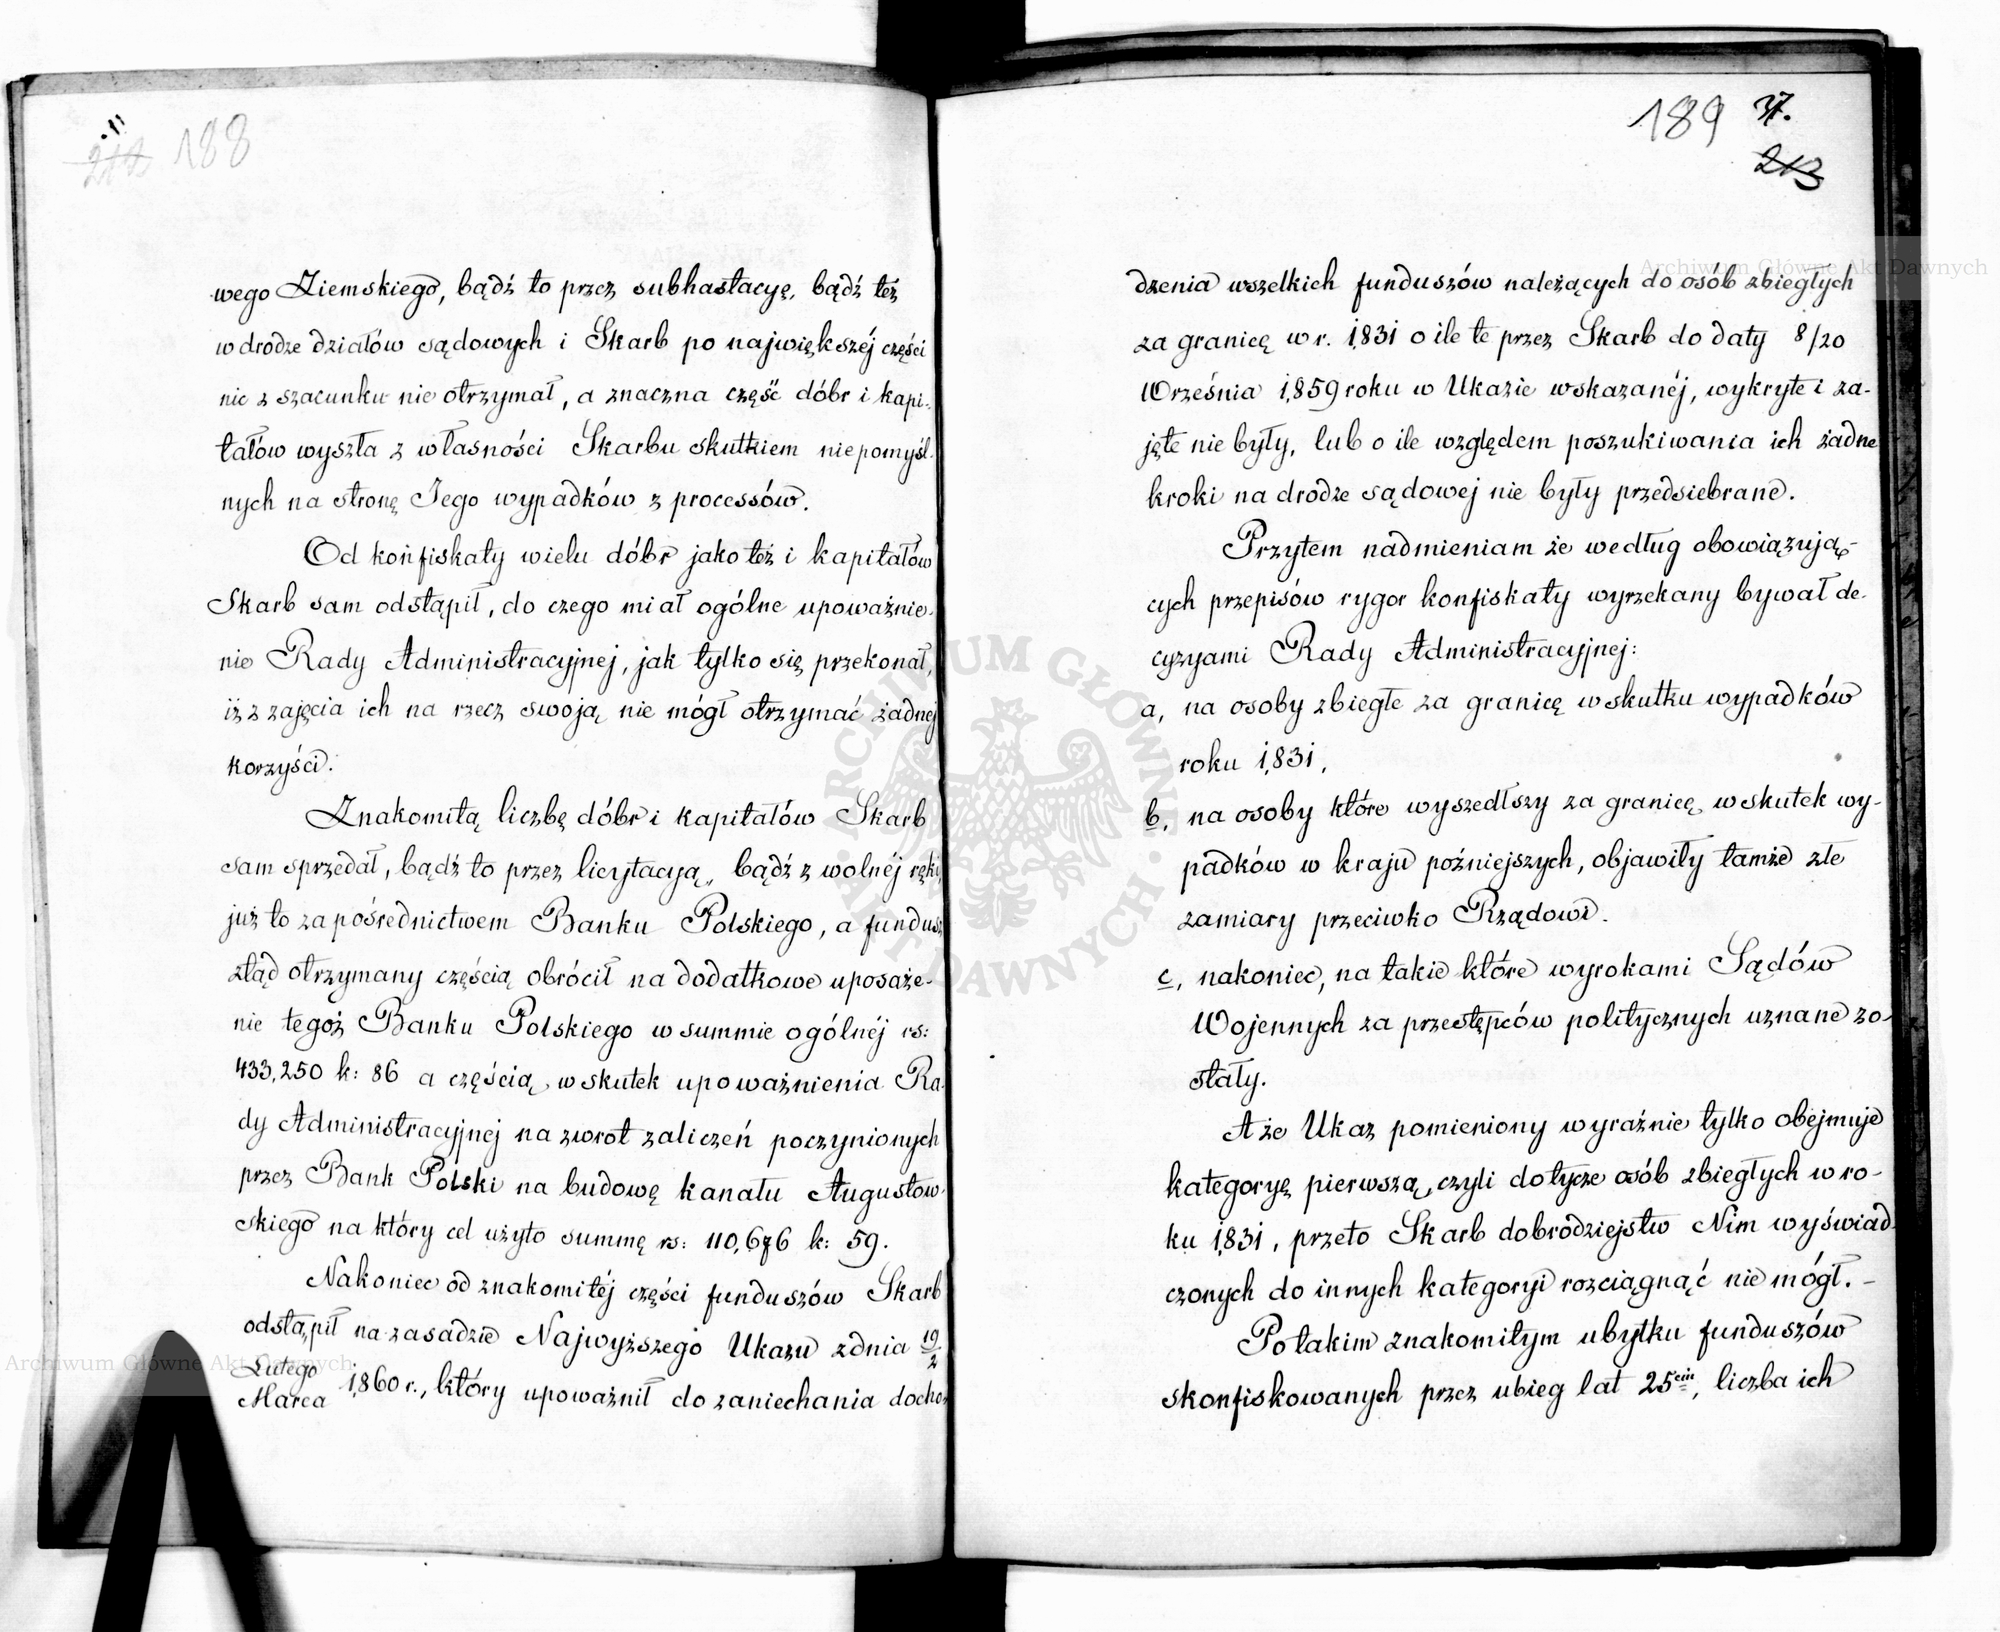 188
wego Ziemskiego, bądź to przez subhastacyę, bądź też
w drodze działów sądowych i Skarb po największéj części
nic z szacunku nie otrzymał, a znaczna część dóbr i kapi-
tałów wyszła z własności Skarbu skutkiem niepomyśl-
nych na stronę Jego wypadków z processów.
Od konfiskaty wielu dóbr jako też i kapitałów
Skarb sam odstąpił, do czego miał ogólne upoważnie-
nie Rady Administracyjnej, jak tylko się przekonał,
iż z zajęcia ich na rzecz swoją nie mógł otrzymać żadnej
korzyści.
Znakomitą liczbę dóbr i kapitałów Skarb
sam sprzedał, bądź to przez licytacyą, bądź z wolnéj ręki,
już to za pośrednictwem Banku Polskiego, a fundusz
ztąd otrzymany częścią obrócił na dodatkowe uposaże-
nie tegoż Banku Polskiego w summie ogólnéj rs:
433,250 k: 86 a częścią w skutek upoważnienia Ra-
dy Administracyjnej na zwrot zaliczeń poczynionych
przez Bank Polski na budowę kanału Augustow-
skiego na który cel użyto summę rs: 110,676 k: 59.
Nakoniec od znakomitéj części funduszów Skarb
odstąpił na zasadzie Najwyższego Ukazu z dnia 19/2
Lutego/Marca 1860 r., który upoważnił do zaniechania docho-
189 37.
213
dzenia wszelkich funduszów należących do osób zbiegłych
za granicę w r. 1831 o ile te przez Skarb do daty 8/20
Września 1859 roku w Ukazie wskazanéj, wykryte i za-
jęte nie były, lub o ile względem poszukiwania ich żadne
kroki na drodze sądowej nie były przedsiebrane.
Przytem nadmieniam że według obowiązują-
cych przepisów rygor konfiskaty wyrzekany bywał de-
cyzyami Rady Administracyjnej:
a, na osoby zbiegłe za granicę w skutku wypadków
roku 1831,
b, na osoby które wyszedłszy za granicę w skutek wy-
padków w kraju poźniejszych, objawiły tamże złe
zamiary przeciwko Rządowi.
c, nakoniec, na takie które wyrokami Sądów
Wojennych za przestępców politycznych uznane zo-
stały.
A że Ukaz pomieniony wyraźnie tylko obejmuje
kategoryę pierwszą, czyli dotycze osób zbiegłych w ro-
ku 1831, przeto Skarb dobrodziejstw Nim wyświad-
czonych do innych kategoryi rozciągnąć nie mógł. -
Po takim znakomitym ubytku funduszów
skonfiskowanych przez ubieg lat 25ciu, liczba ich
Archiwum Główne Akt Dawnych
ARCHIWUM GŁÓWNE · AKT DAWNYCH ·
Archiwum Główne Akt Dawnych